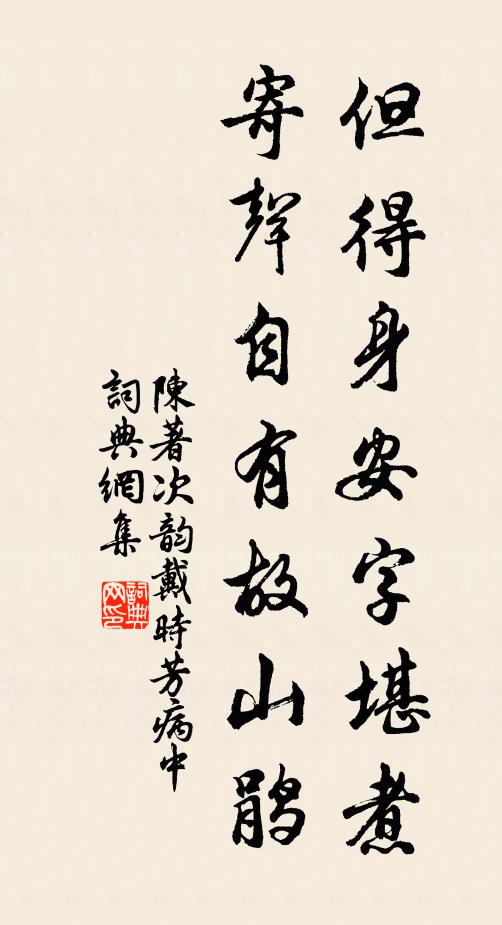 但得身安字堪煮
寄聲自有故山鵑
陳著次韵戴時芳病中
詞典網集
詞典网印